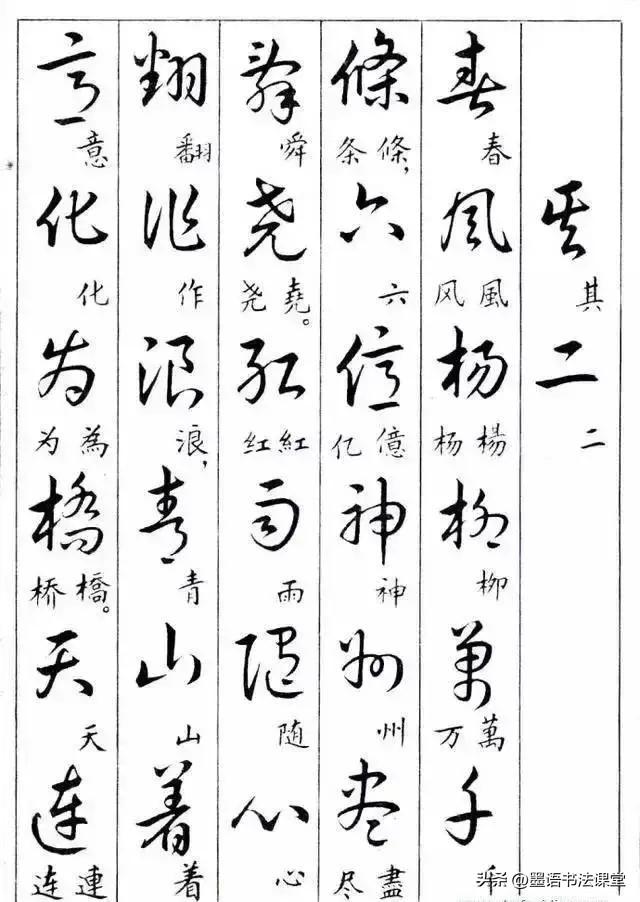 其二
其 二
春风杨柳萬千
春 風风 楊杨 柳 萬万 千
條六億神州尽
條，条 六 億亿 神 州 盡尽
舜尧红雨随心
舜 堯。尧 紅红 雨 随 心
翻作浪青山着
翻 作 浪， 青 山 着
意化为橋天连
意 化 為为 橋。桥 天 連连
头条 @墨语书法课堂